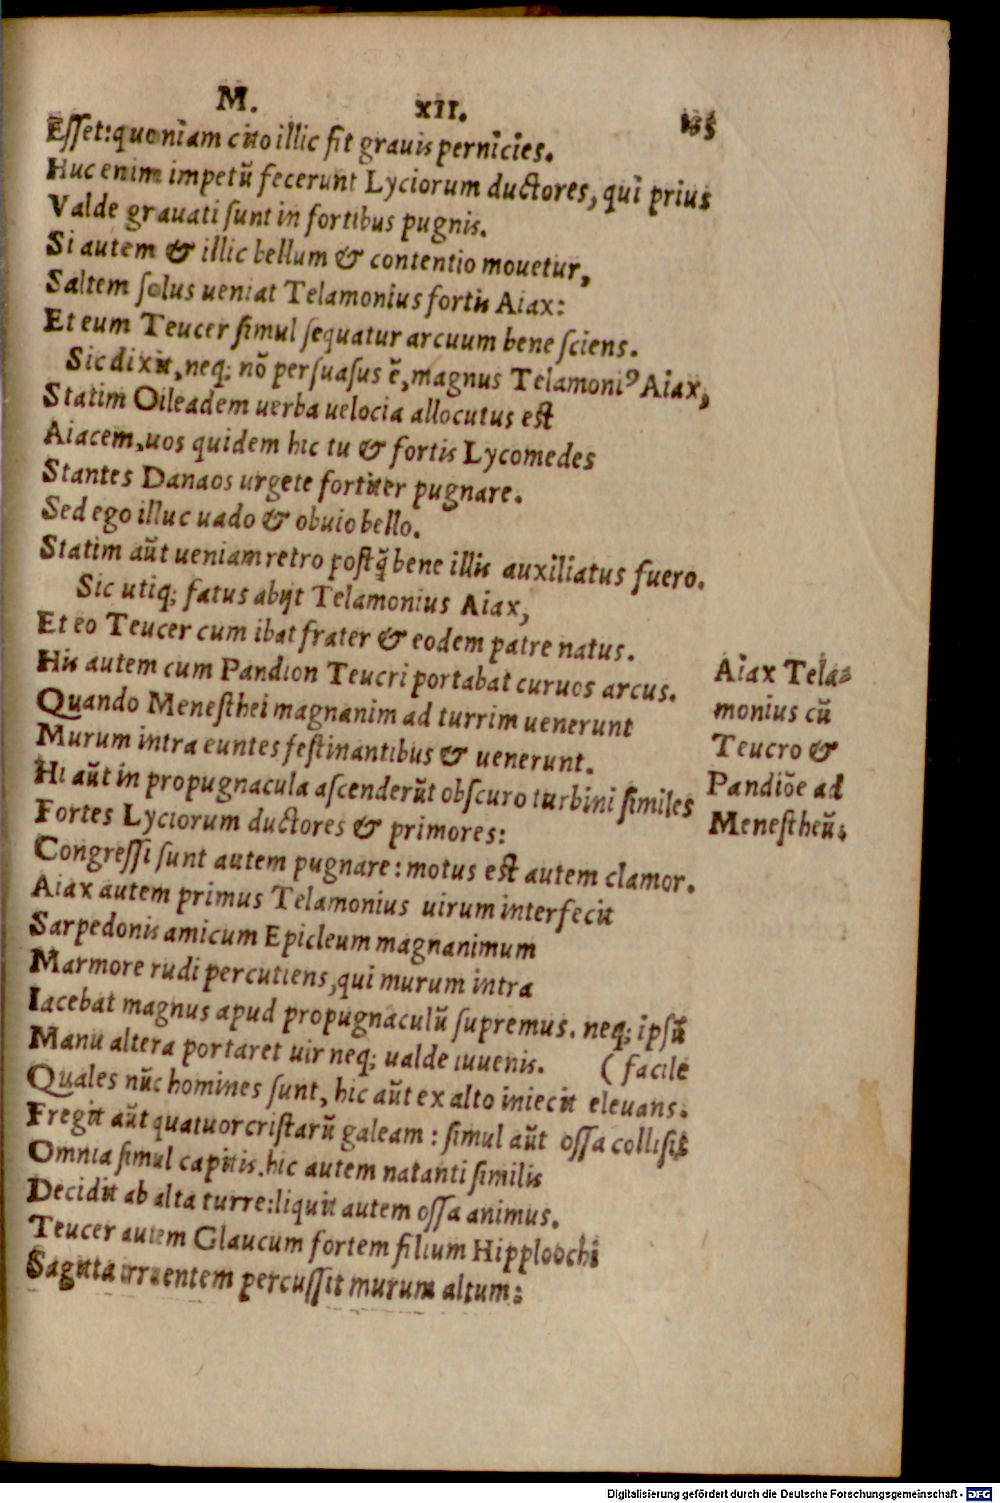 M. XII.
Eſſet: quoniam cito illic fit grauis pernicies.
Huc enim impetū fecerunt Lyciorum ductores, qui prius
Valde grauati ſunt in fortibus pugnis.
Si autem & illic bellum & contentio mouetur,
Saltem ſolus ueniat Telamonius fortis Aiax:
Et eum Teucer ſimul ſequatur arcuum bene ſciens.
Sic dixit, neq; nō perſuaſus ē, magnus Telamoniꝰ Aiax,
Statim Oileadem uerba uelocia allocutus eſt
Aiacem, uos quidem hic tu & fortis Lycomedes
Stantes Danaos urgete fortiter pugnare.
Sed ego illuc uado & obuio bello.
Statim aūt ueniam retro poſtꝗ̄ bene illis auxiliatus fuero.
Sic utiq; fatus abijt Telamonius Aiax,
Et eo Teucer cum ibat frater & eodem patre natus.
His autem cum Pandion Teucri portabat curuos arcus.
Quando Meneſthei magnanim ad turrim uenerunt
Murum intra euntes feſtinantibus & uenerunt.
Hi aūt in propugnacula aſcenderūt obſcuro turbini ſimiles
Fortes Lyciorum ductores & primores:
Congreſſi ſunt autem pugnare: motus eſt autem clamor.
Aiax autem primus Telamonius uirum interfecit
Sarpedonis amicum Epicleum magnanimum
Marmore rudi percutiens, qui murum intra
Iacebat magnus apud propugnaculū ſupremus. neq; ipſū
Manu altera portaret uir neq; ualde iuuenis. (facile
Quales nūc homines ſunt, hic aūt ex alto iniecit eleuans.
Fregit aūt quatuor criſtarū galeam: ſimul aūt oſſa colliſit
Omnia ſimul capitis. hic autem natanti ſimilis
Decidit ab alta turre: liquit autem oſſa animus.
Teucer autem Glaucum fortem filium Hipploochi
Sagitta irruentem percuſſit murum altum:
Aiax Tela⸗
monius cū
Teucro &
Pandiōe ad
Meneſtheū.
Digitalisierung gefördert durch die Deutsche Forschungsgemeinschaft - DFG